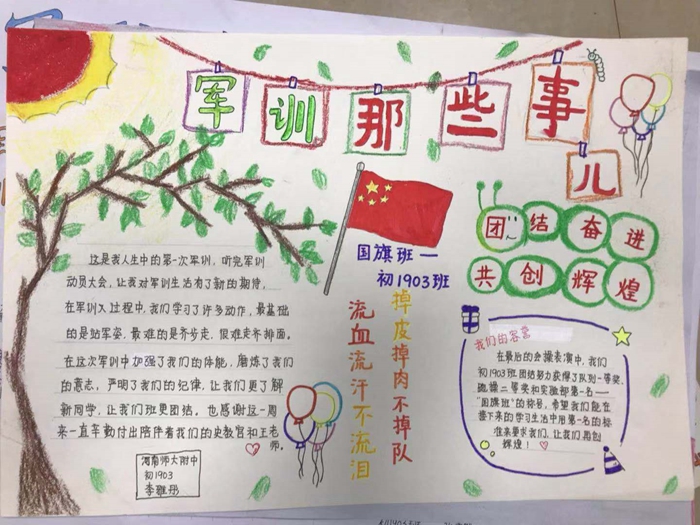 军训那些事儿
国旗班一
初1903班
团结奋进
共创辉煌
掉皮掉肉不掉队
流血流汗不流泪
这是我人生中的第一次军训，听完军训
动员大会，让我对军训生活有了新的期待，
在军训入过程中，我们学习了许多动作，最基础
的是站军姿，最难的是齐步走，很难走齐排面。
在这次军训中加强了我们的体能，磨炼了我们
的意志，严明了我们的纪律，让我们更了解
新同学，让我们班更团结。也感谢这一周
来一直辛勤付出陪伴着我们的史教官和王老
师。
河南师大附中
初1903
李雅丹
我们的荣誉
在最后的会操表演中，我们
初1903班团结努力获得了队列一等奖，
跑操二等奖和实验部第一名——
“国旗班”的称号，希望我们能在
接下来的学习生活中用第一名的标
准来要求我们，让我们再创
辉煌！